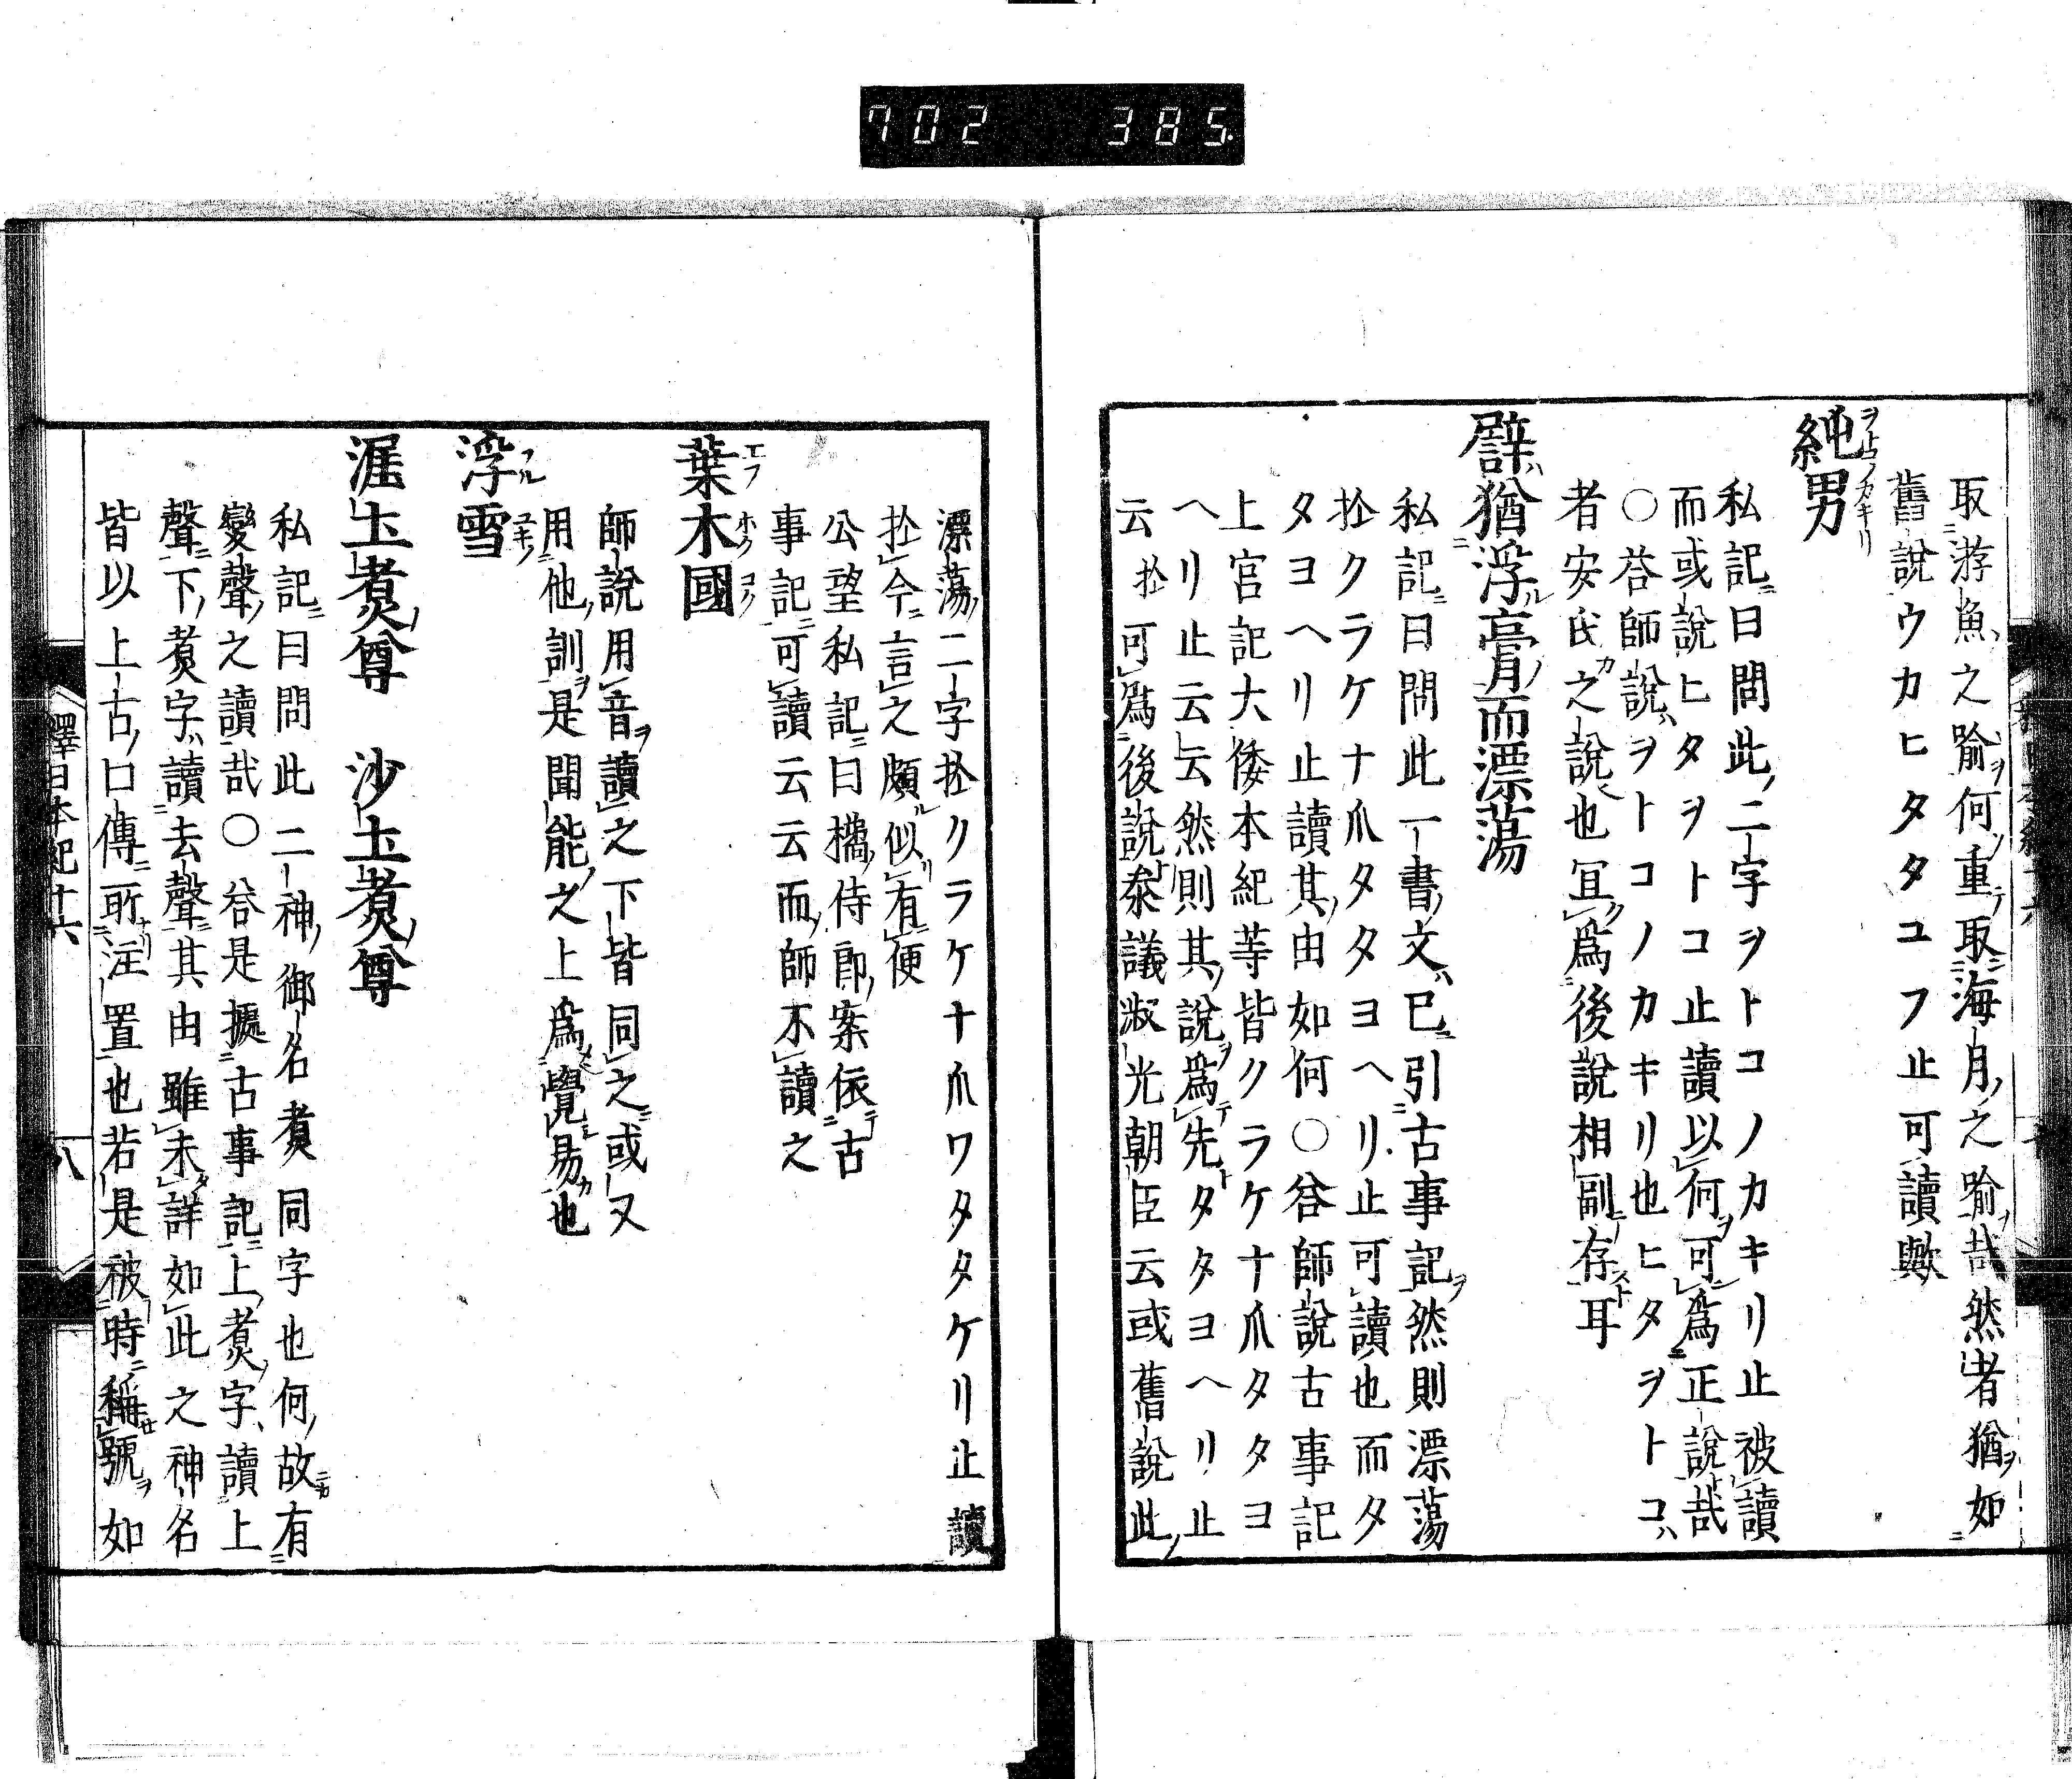 702 385
取游魚之喩何重取海月之喩哉然者猶如
舊說ウカヒタタユフ止可讀歟
純男
私記曰問此二字ヲトコノカキリ止被讀
而或說ヒタヲトコ止讀以何可爲正說哉
○荅師說ヲトコノカキリ也ヒタヲトコ
者安氏之說也冝爲後說相副存耳
譬猶浮膏而漂蕩
私記曰問此一書文已引古事記然則漂蕩
於クラケナ爪タタヨヘリ止可讀也而タ
タヨヘリ止讀其由如何○荅師說古事記
上官記大倭本紀等皆クラケナ爪タタヨ
ヘリ止云云然則其說爲先タタヨヘリ止
云於可爲後說叅議淑光朝臣云或舊說此
漂蕩二字於クラケナ爪ワタタケリ止讀
於今言之頗似有便
公望私記曰橘侍郎案依古
事記可讀云云而師不讀之
葉木國
師說用音讀之下皆同之或又
用他訓是聞能之上爲覺易也
浮雪
涅土煑尊 沙土煑尊
私記曰問此二神御名煑同字也何故有
變聲之讀哉○荅是據古事記上煑字讀上
聲下煑字讀去聲其由雖未詳如此之神名
皆以上古口傳所注置也若是被時稱號如
釋日本紀十六
八